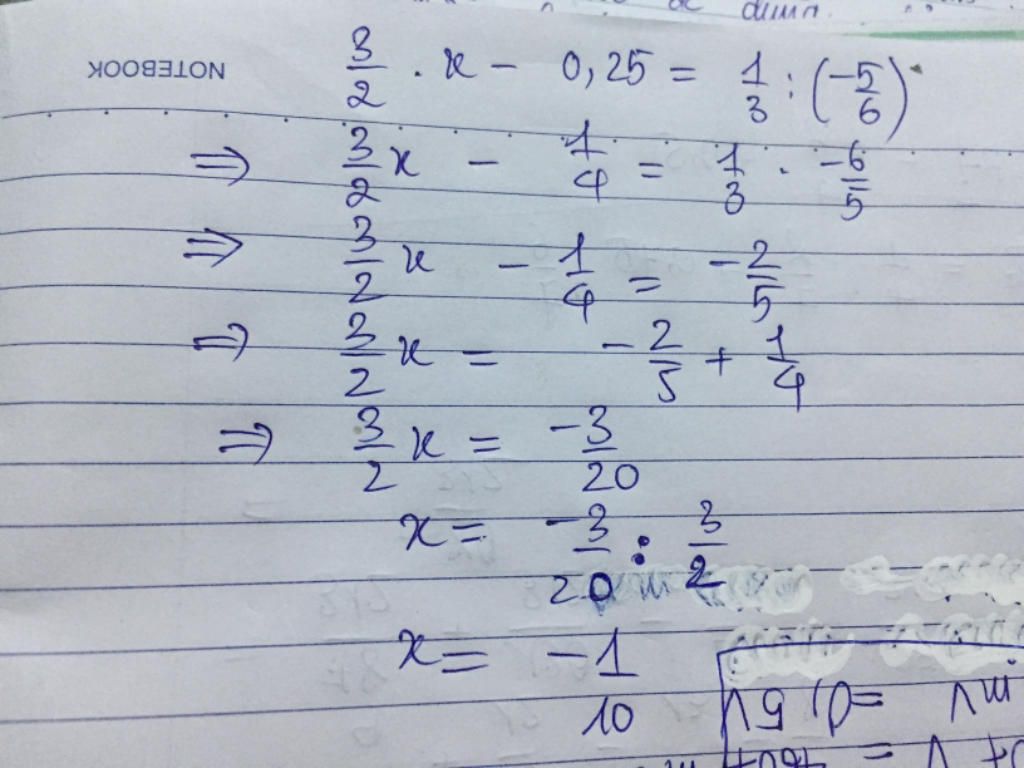 NOTEBOOK
3/2 . x - 0,25 = 1/3 : (-5/6)
⇒ 3/2 x - 1/4 = 1/3 . -6/5
⇒ 3/2 x - 1/4 = -2/5
⇒ 3/2 x = -2/5 + 1/4
⇒ 3/2 x = -3/20
x = -3/20 : 3/2
x = -1/10